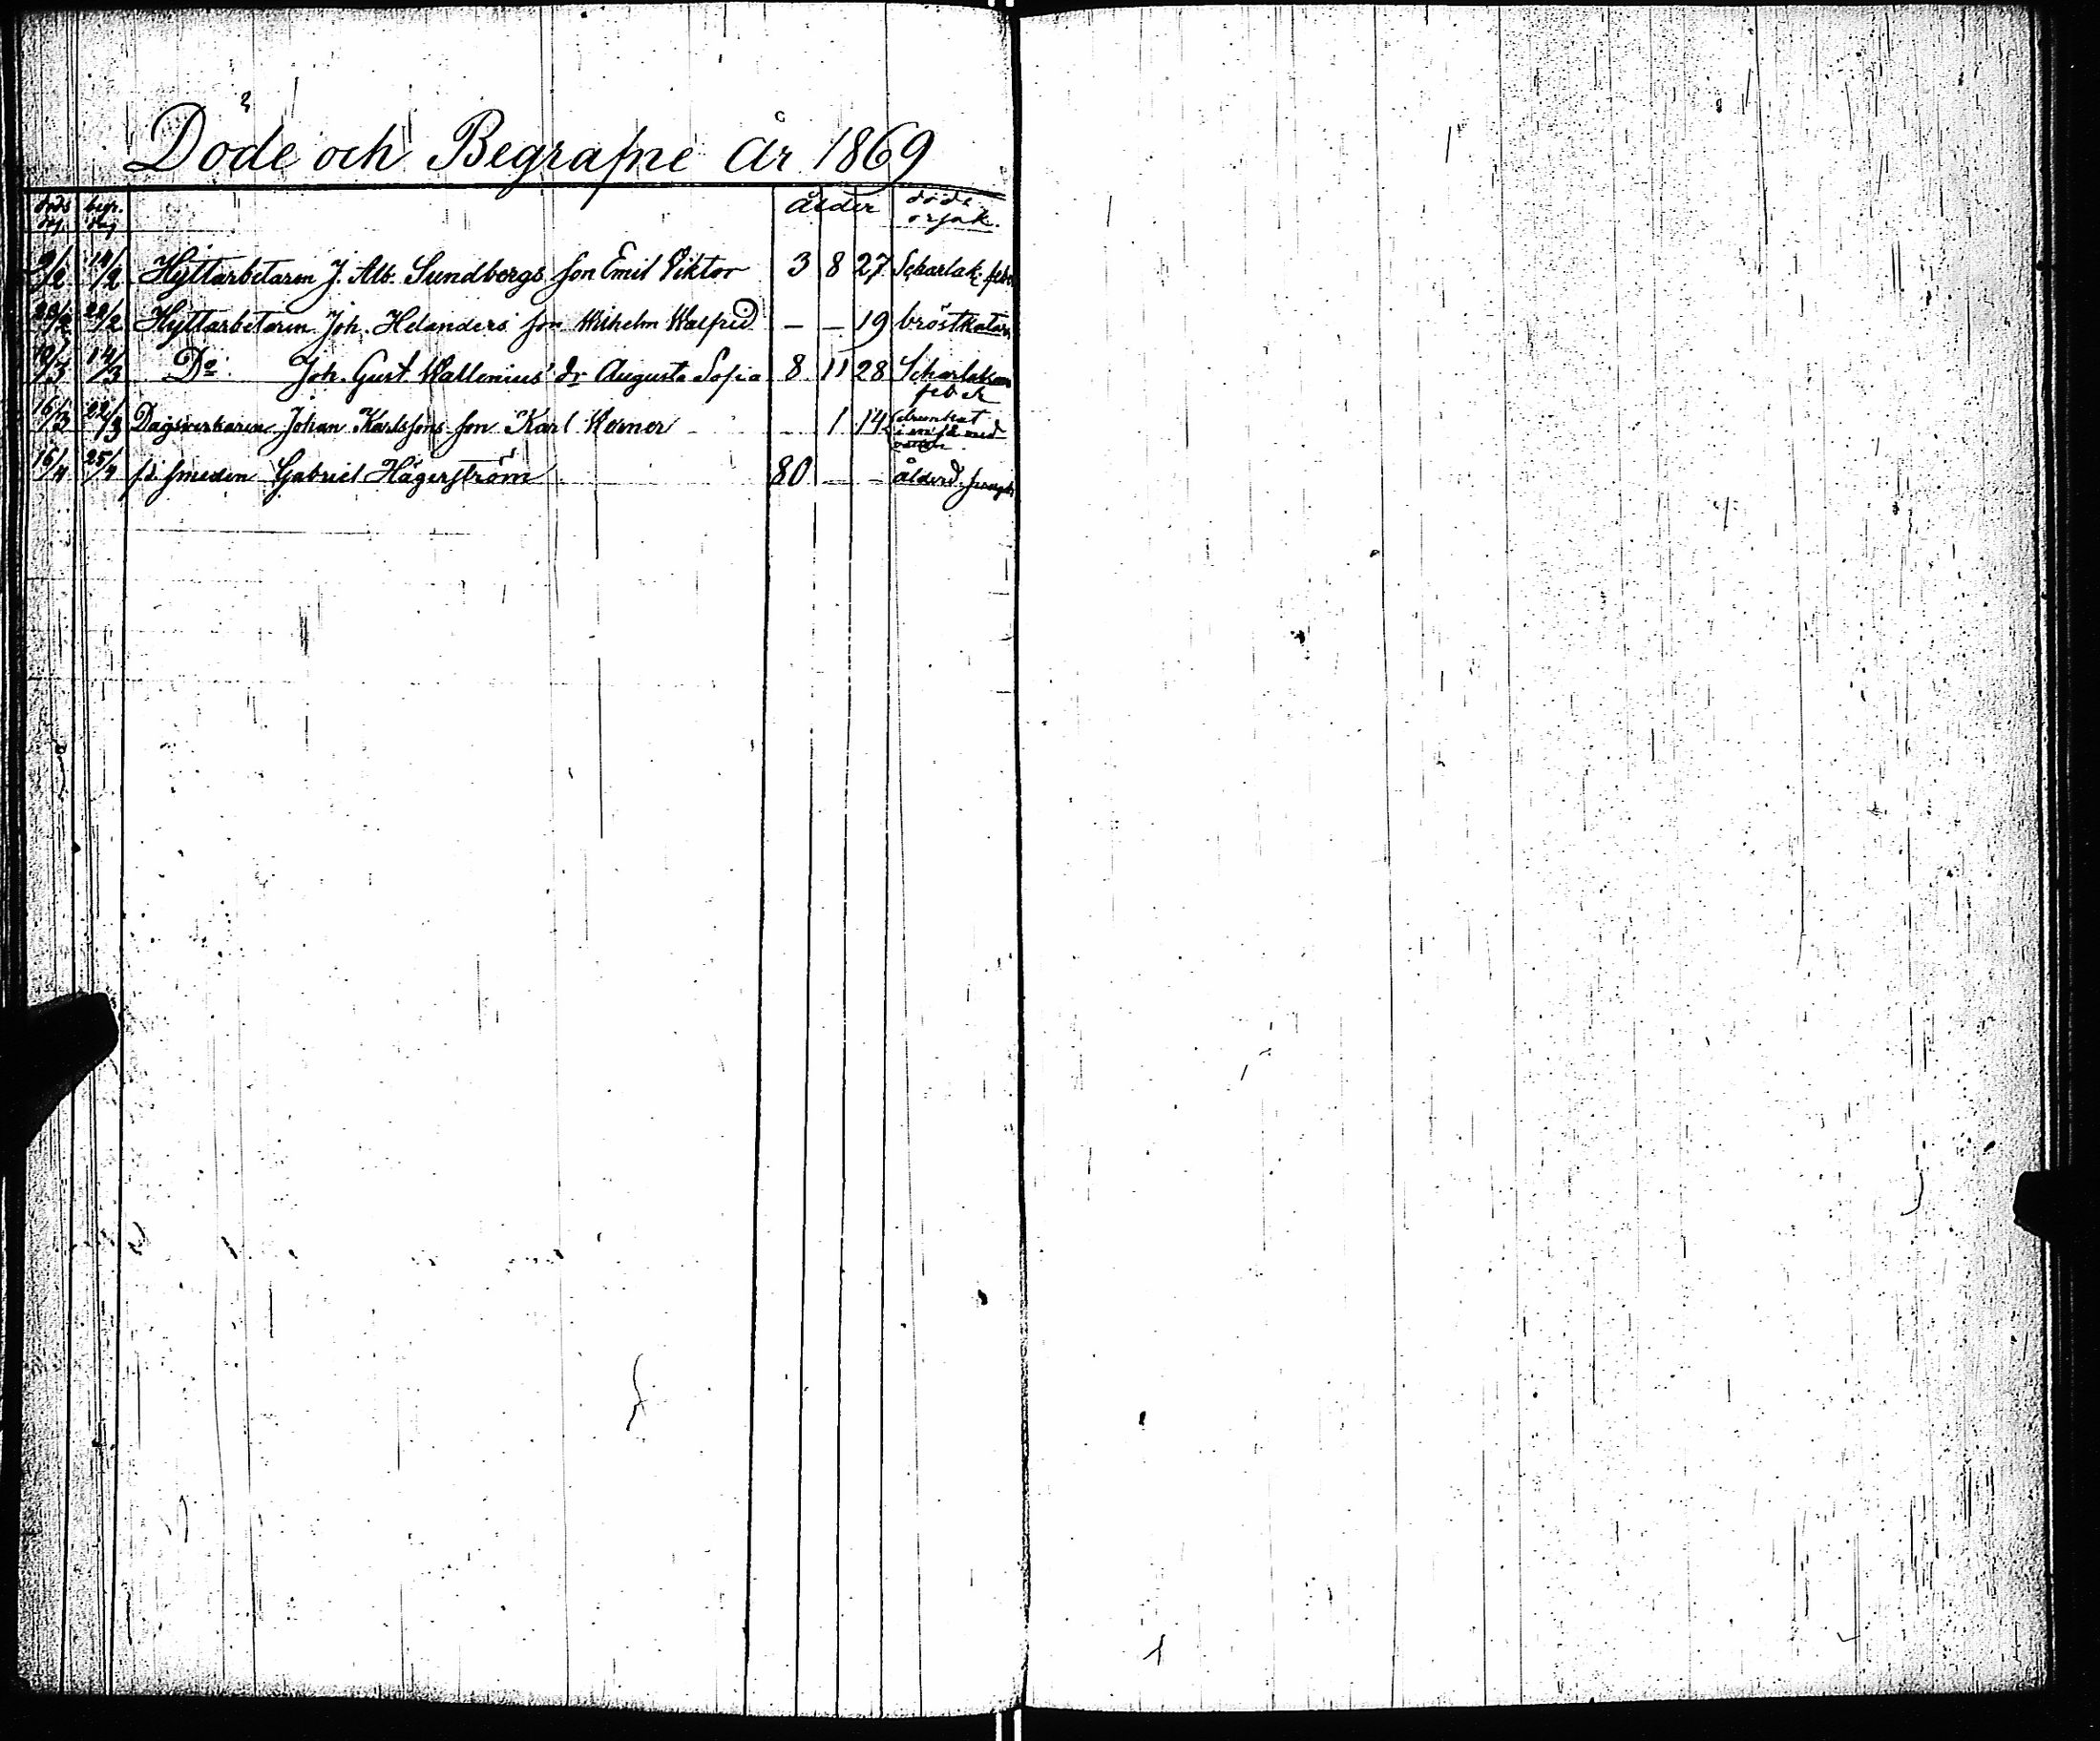 Döde och Begrafne år 1869
döds dag begr. dag ålder döds orsak.
9/2 14/2 Hyttarbetaren J. Alb. Sundbergs son Emil Viktor 3 8 27 Scharlak. feber
20/2 28/2 Hyttarbetaren Joh. Helanders son Wilhelm Walfrid — — 19 bröstkatarr
10/3 14/3 Do. Joh. Gust. Wallenius' dr Augusta Sofia 8 11 28 Scharlakans
feber
16/3 22/3 Dagsverkaren Johan Karlssons son Karl Werner — 1 14 drunknat
16/4 25/4 f.d. smeden Gabriel Hägerström 80 — — ålderd.